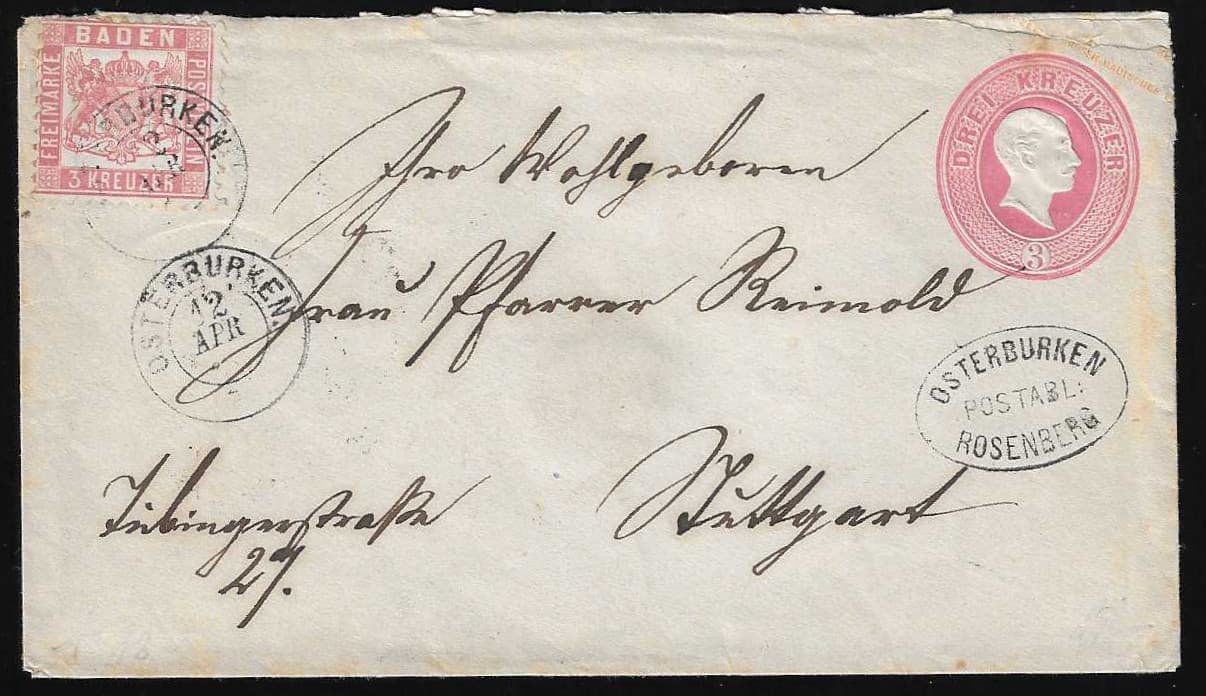 BADEN
FREIMARKE
3 KREUZER
BURKEN.
APR
DREI KREUZER
3
Ihro Wohlgeboren
OSTERBURKEN.
12
APR
Frau Pfarrer Reimold
OSTERBURKEN
POSTABL:
ROSENBERG
Tübingerstraße
27.
Stuttgart